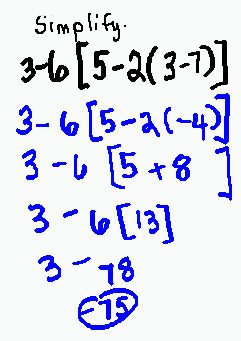 Simplify.
3-6[5-2(3-7)]
3-6[5-2(-4)]
3-6[5+8]
3-6[13]
3-78
-75